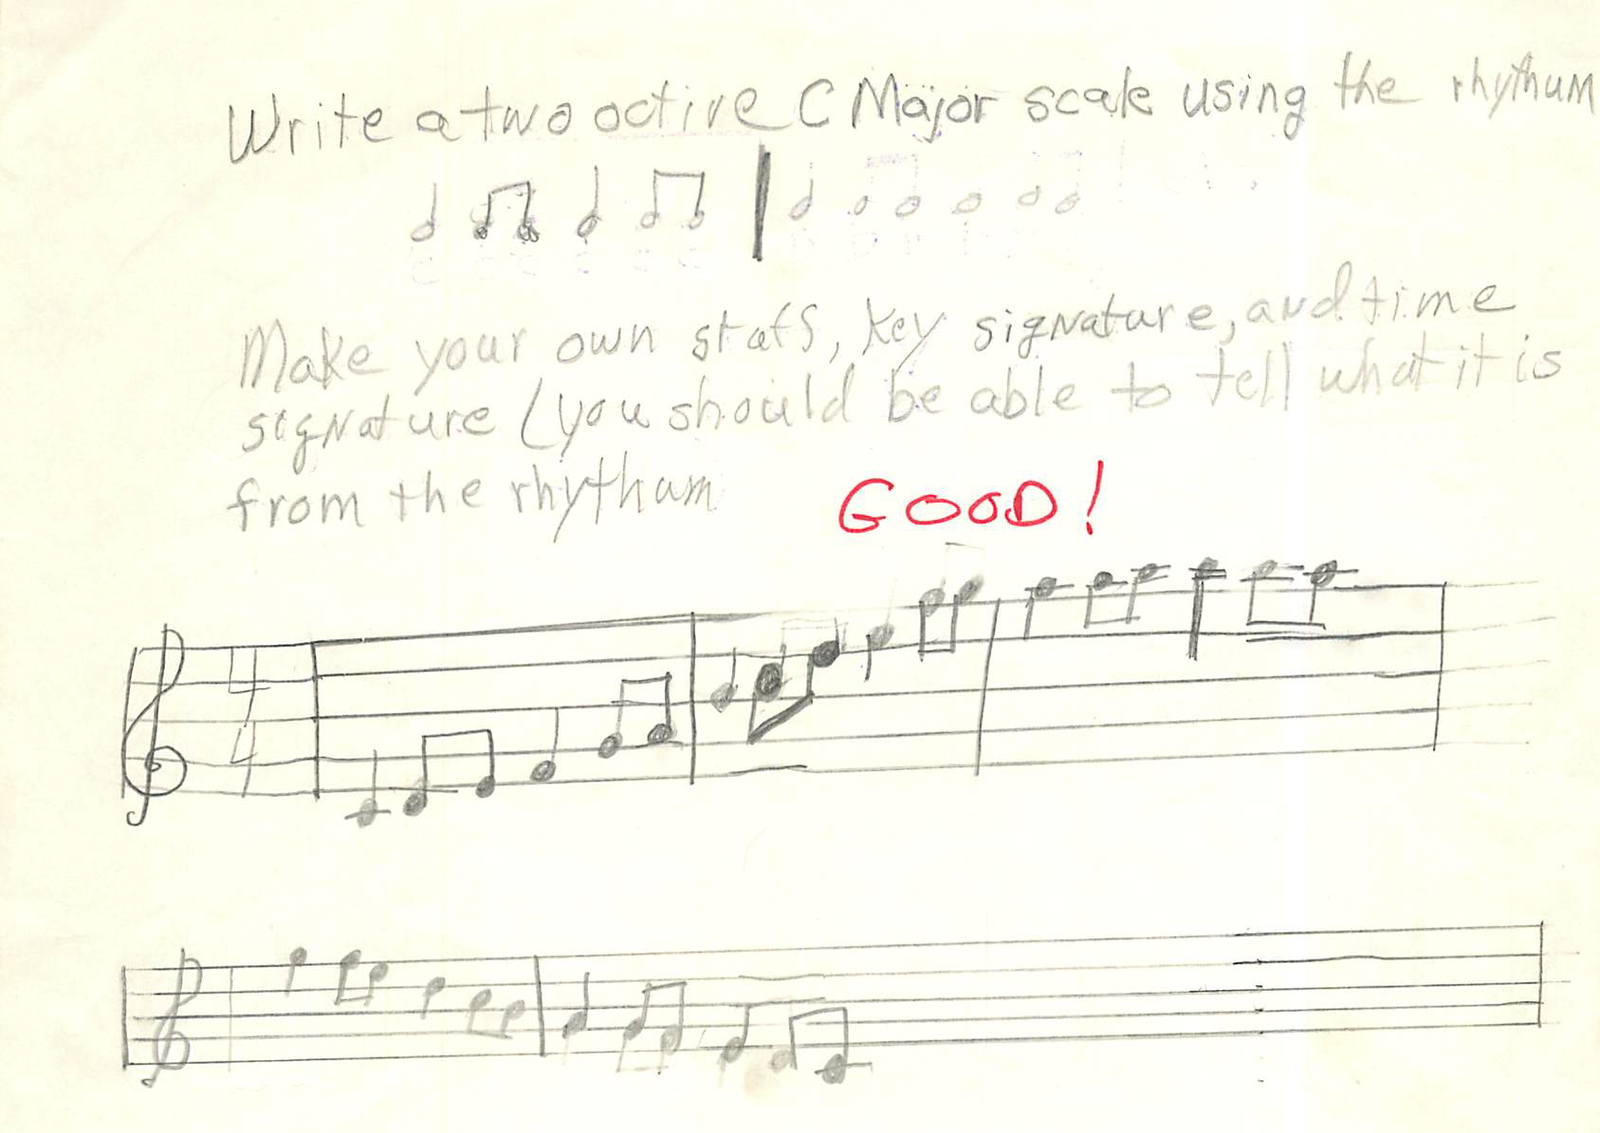 Write a two octive C Major scale using the rhythum
Make your own staff, key signature, and time
signature (you should be able to tell what it is
from the rhythum
GOOD!
4
4